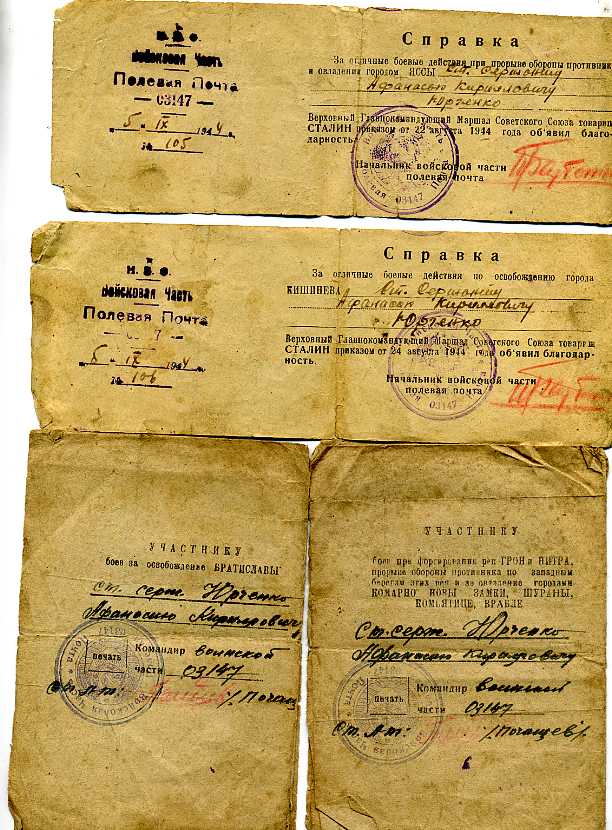 Н. В. О.
Войсковая Часть
Полевая Почта
— 03147 —
5 " IX 1944 г.
№ 105
Справка
За отличные боевые действия при прорыве обороны противник
и овладения городом ЯССЫ Ст. Сержанту
Афанасью Кирилловичу
Юрченко
Верховный Главнокомандующий Маршал Советского Союза товарищ
СТАЛИН приказом от 22 августа 1944 года об'явил благо-
дарность.
Начальник войсковой части
полевая почта
03147
Н. В. О.
Войсковая Часть
Полевая Почта
7
5 " IX 1944 г.
№ 106
Справка
За отличные боевые действия по освобождению города
КИШИНЕВА Ст. Сержанту
Афанасью Кирилловичу
Юрченко
Верховный Главнокомандующий Маршал Советского Союза товарищ
СТАЛИН приказом от 24 августа 1944 года об'явил благодар-
ность.
Начальник войсковой части
полевая почта
03147
УЧАСТНИКУ
боев за освобождение БРАТИСЛАВЫ
Ст. серж. Юрченко
Афанасию Кирилловичу
03147
Почта
печать
Командир воинской
части 03147
Ст. Л-т: /Почащев
УЧАСТНИКУ
боев при форсировании рек ГРОН и НИТРА,
прорыве обороны противника по западным
берегам этих рек и за овладение городами
КОМАРНО НОВЫ ЗАМКИ, ШУРАНЫ,
КОМЬЯТИЦЕ, ВРАБЛЕ
Ст. серж. Юрченко
Афанасию Кирилловичу
Почта
печать
Командир воинской
части 03147
Ст. Л-т: /Почащев/.